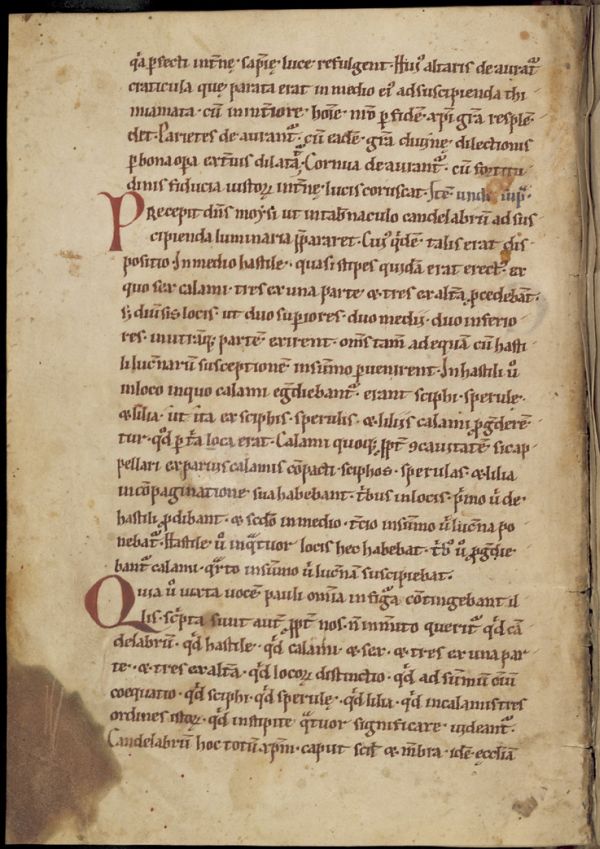 q̄a ꝑfecti int̄nę sapīę luce refulgent. Hui᷒ altaris deaurat᷑
craticula quę parata erat in medio ei᷒ ad suscipienda thi
miamata. cū in int̄iore hoīe nr̄o ꝑ fidē xp̄i gr̄a resplē
det. Parietes deaurant᷑. cū eadē gr̄a diuinę dilectionis
ꝑ bona oꝑa ext̄ius dilatat᷑. Cornua deaurant᷑. cū fortitu
dinis fiducia iustoꝝ int̄nę lucis coruscat. Itē unde
Precepit dn̄s moysi ut in tab̄naculo candelabrū ad sus
cipienda luminaria p̄pararet. Cui᷒ q̇dē talis erat dis
positio. In medio hastile. quasi stipes quidā erat erect᷒. ex
quo sex calami. tres ex una parte & tres ex alt̄a ꝓcedebāt.
s; diūsis locis. ut duo suꝑiores. duo medii. duo inferio
res. in utraq; partē exirent. om̄s tam̄ ad equā cū hasti
li luc̄narū susceptionē in sūmo ꝑuenirent. In hastili ū
in loco in quo calami eḡdiebant᷑. erant sciphi. sperulę.
& lilia. ut ita ex sciphis. sperulis. & liliis calami ꝓḡderēn
tur. qd̄ ꝑ t̄a loca erat. Calami quoq; ꝓpt̄ ꝯcauitatē sic ap
pellari ex paruis calamis cōpacti. sciphos. sperulas. & lilia
in cōpaginatione sua habebant. t̄bus in locis. p̄mo ū de
hastili ꝓdibant. & scd̄o in medio. t̄cio in sūmo ū luc̄na po
nebat᷑. Hastile ū in q̄tuor locis hec habebat. t̄b᷒ ū ꝓḡdie
bant᷑ calami. q̄rto in sūmo ū luc̄nā suscipiebat.
Quia ū iuxta uocē pauli om̄ia in fiḡa cōtingebant il
lis. sc̄pta sunt aut̄ ꝓpt̄ nos. n̄ īm̄ito querit᷑ qd̄ cā
delabrū. qd̄ hastile. qd̄ calami. & sex. & tres ex una par
te. & tres ex alt̄a. qd̄ locoꝝ distinctio. qd̄ ad sūmū eiū
coequatio. qd̄ sciphi. qd̄ sperulę. qd̄ lilia. qd̄ in calamis tres
ordines istoꝝ. qd̄ in stipite q̄tuor significare uideant᷑.
Candelabrū hoc totū xp̄m. caput scil̄ & m̄bra. idē ęcclīā